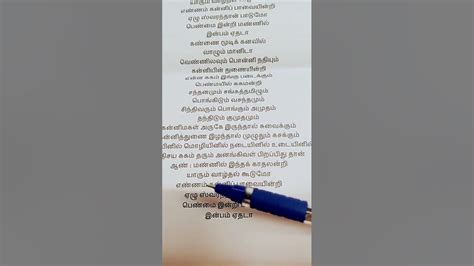 யாரும் வாழ்தல்
எண்ணம் கன்னிப் பாவையின்றி
ஏழு ஸ்வரந்தான் பாடுமோ
பெண்மை இன்றி மண்ணில்
இன்பம் ஏதடா
கண்ணை மூடிக் கனவில்
வாழும் மானிடா
வெண்ணிலவும் பொன்னி நதியும்
கன்னியின் துணையின்றி
என்ன சுகம் இங்கு படைக்கும்
பெண்மையில் சுகமன்றி
சந்தனமும் சங்கத்தமிழும்
பொங்கிடும் வசந்தமும்
சிந்திவரும் பொங்கும் அமுதம்
தந்திடும் குமுதமும்
கன்னிமகள் அருகே இருந்தால் சுவைக்கும்
கன்னித்துணை இழந்தால் முழுதும் கசக்கும்
மொழியினில் நடையினில் உடையினில்
சுகம் தரும் அனங்கிவள் பிறப்பிது தான்
ஆண் : மண்ணில் இந்தக் காதலன்றி
யாரும் வாழ்தல் கூடுமோ
எண்ணம் கன்னிப் பாவையின்றி
ஏழு
பெண்மை இன்றி
இன்பம் ஏதடா